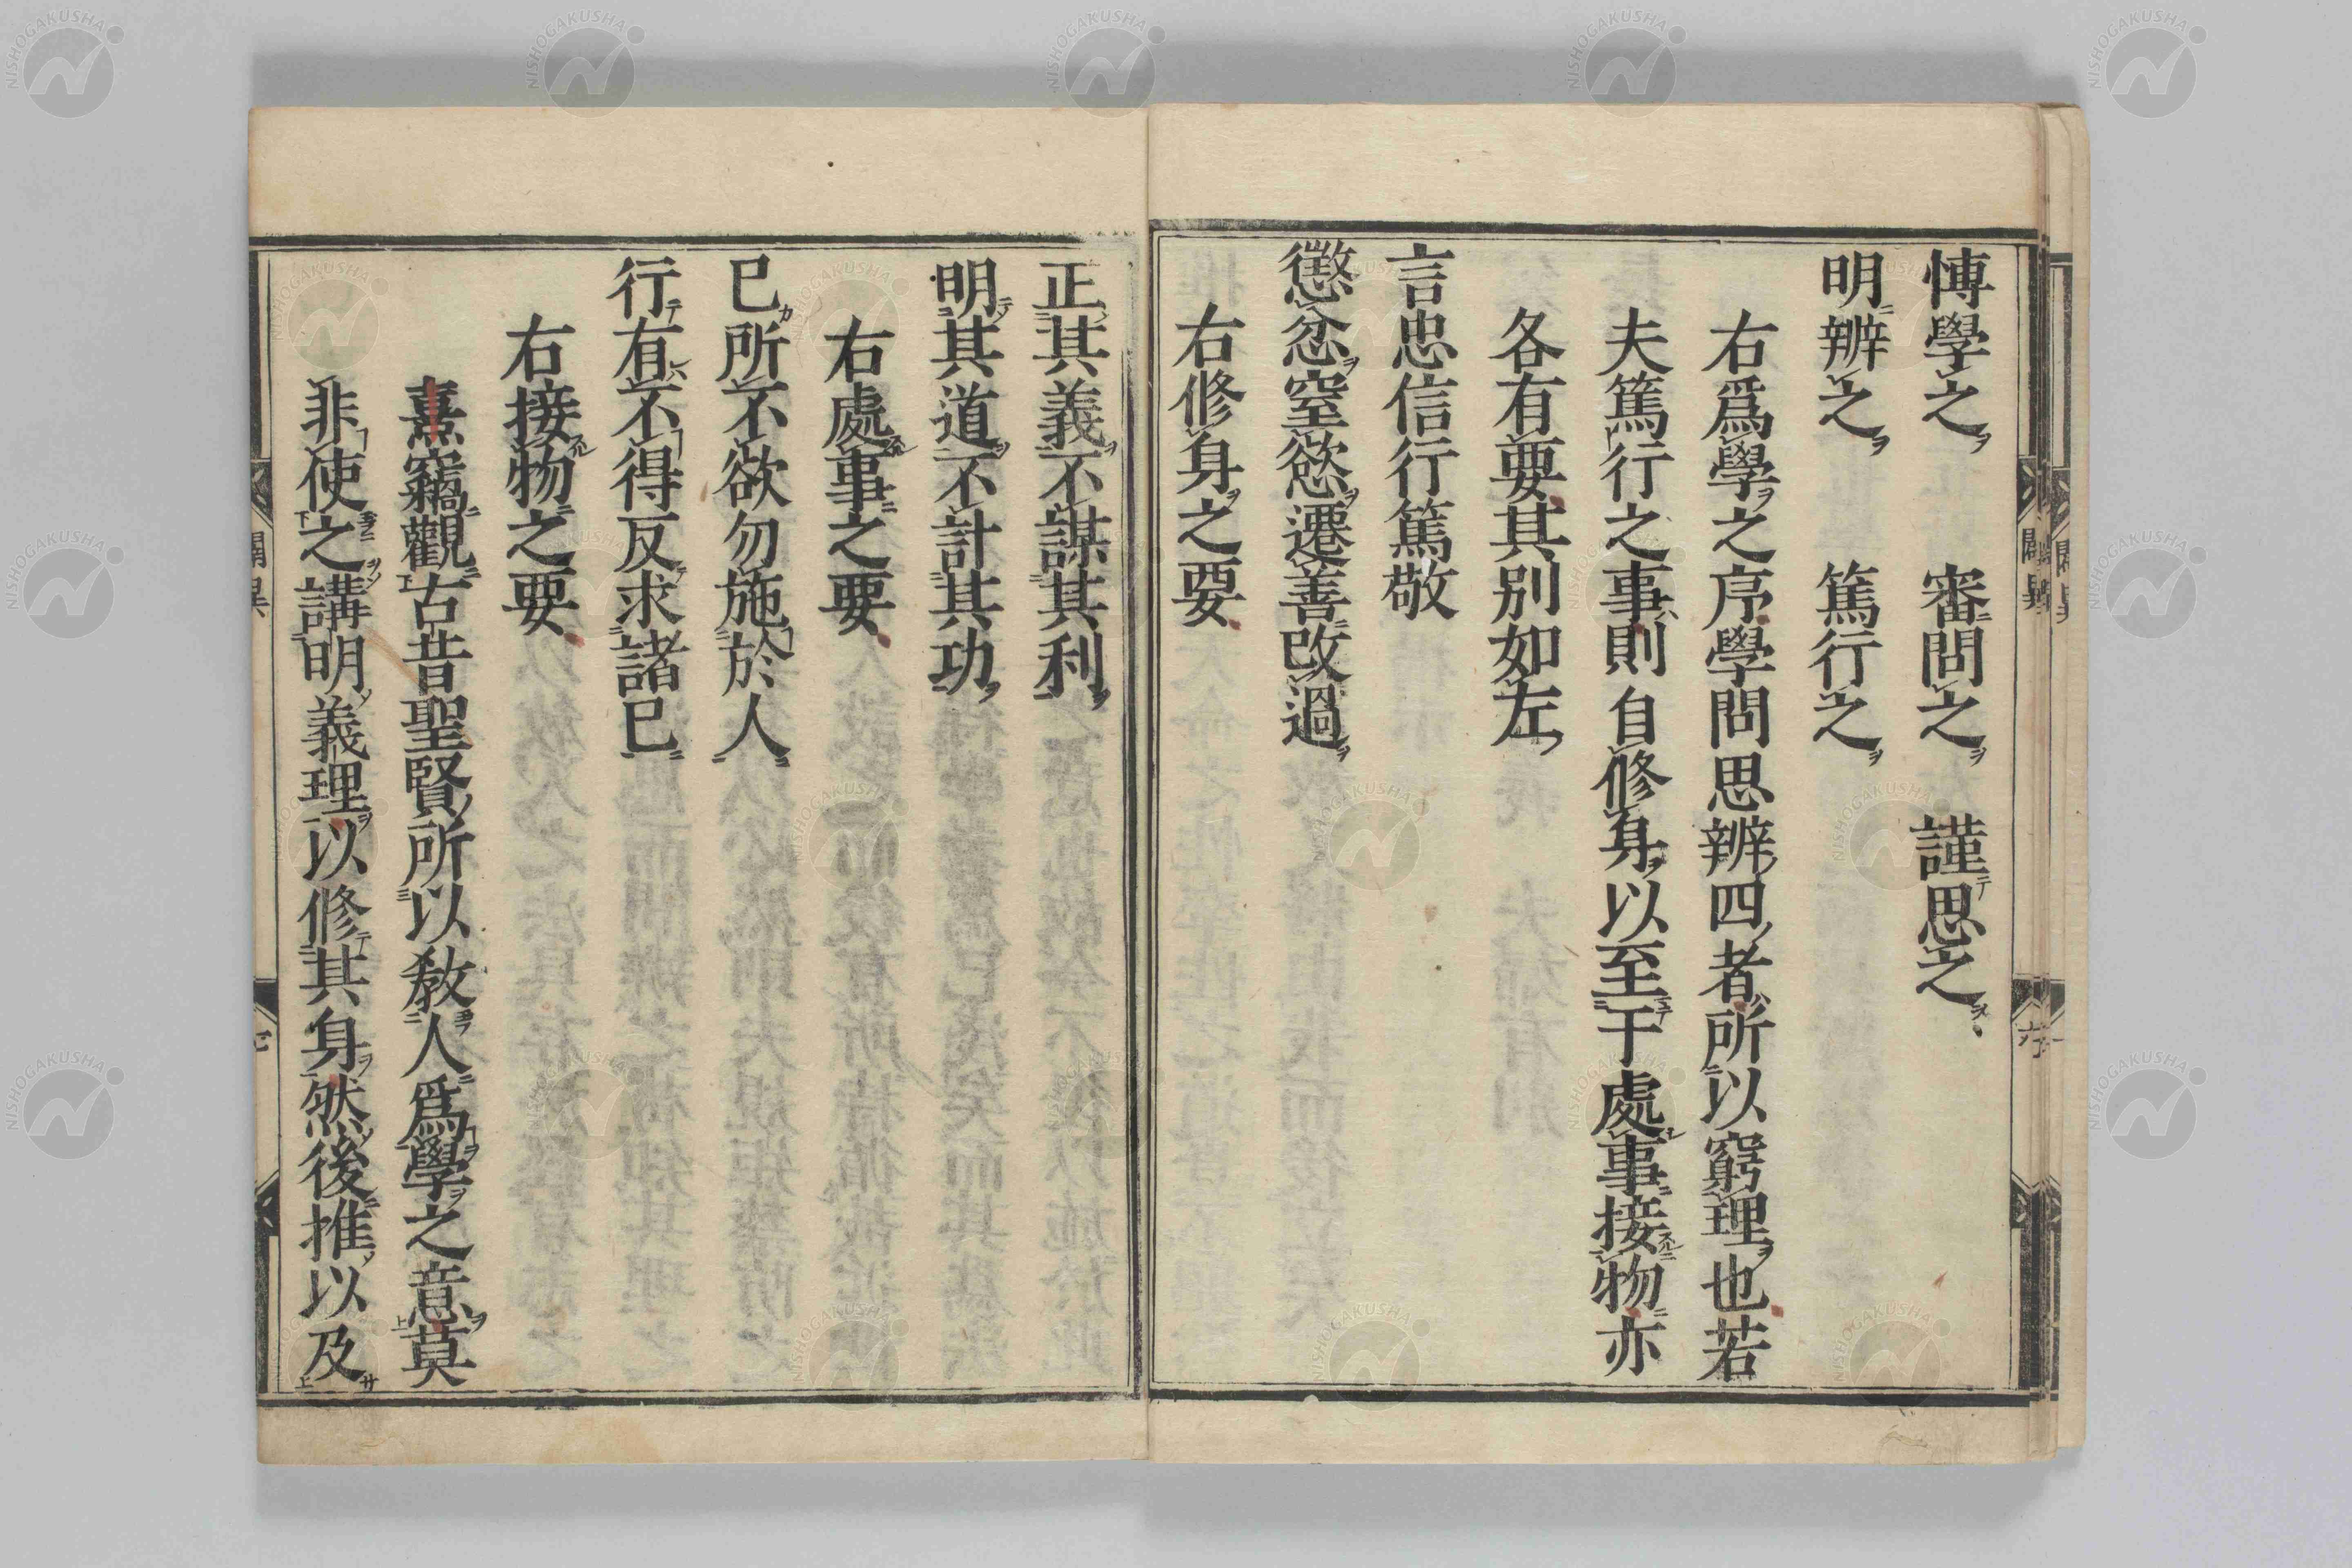 愽學之　審問之　謹思之
明辨之　篤行之
右爲學之序學問思辨四者所以窮理也若
夫篤行之事則自修身以至于處事接物亦
各有要其别如左
言忠信行篤敬
懲忿窒慾遷善改過
右修身之要
正其義不謀其利
明其道不計其功
右處事之要
已所不欲勿施於人
行有不得反求諸已
右接物之要
熹竊觀古昔聖賢所以教人爲學之意莫
非使之講明義理以修其身然後推以及
闢異
六
七
NISHOGAKUSHA